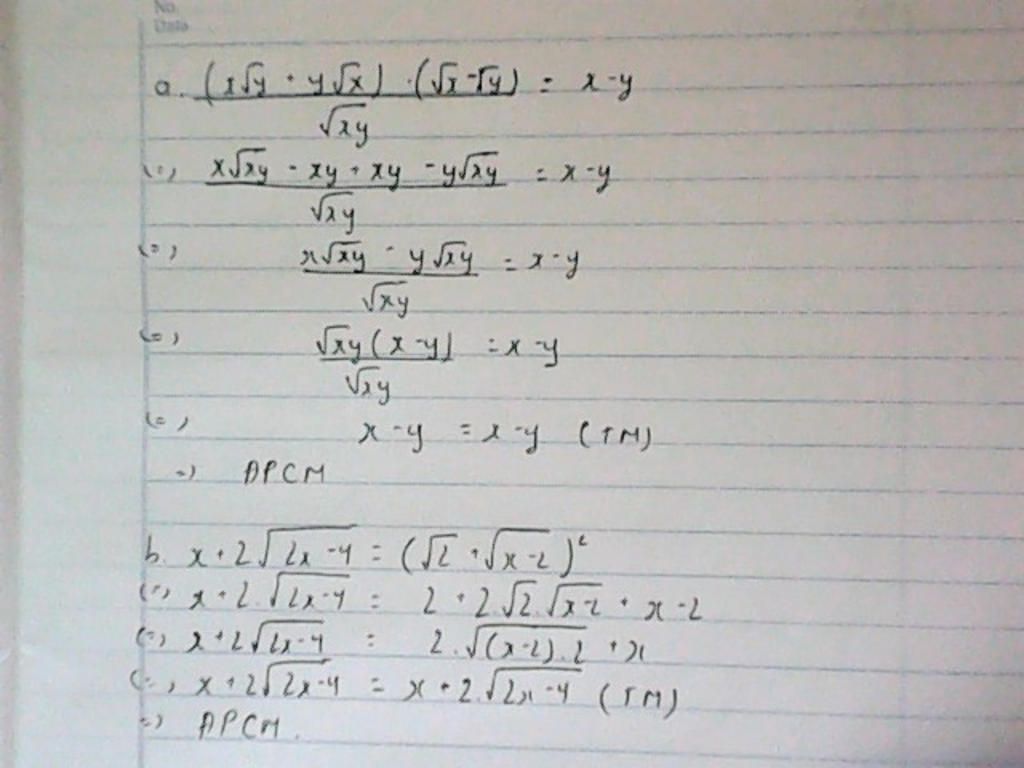 No.
Date
a. (x√y + y√x) . (√x - √y) / √xy = x - y
(=) x√xy - xy + xy - y√xy / √xy = x - y
(=) x√xy - y√xy / √xy = x - y
(=) √xy (x - y) / √xy = x - y
(=) x - y = x - y (TM)
=) ĐPCM
b. x + 2√2x - 4 = (√2 + √x - 2)²
(=) x + 2.√2x - 4 = 2 + 2.√2.√x - 2 + x - 2
(=) x + 2√2x - 4 = 2.√(x - 2).2 + x
(=) x + 2√2x - 4 = x + 2.√2x - 4 (TM)
=) ĐPCM.